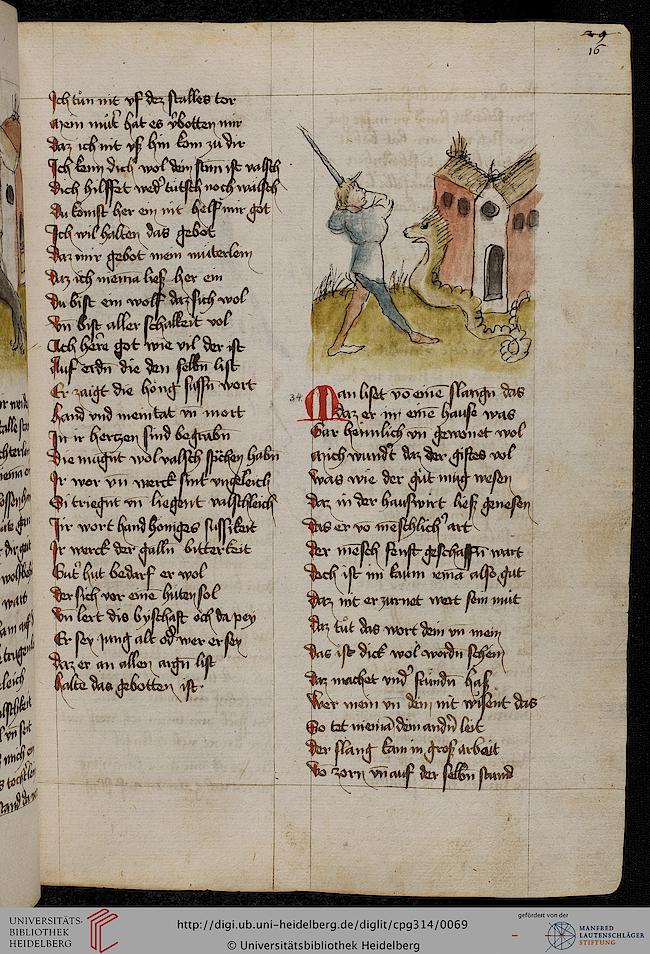 29
16
Ich tůn nit vf dez stalles tor
Mein můt' hat es v̈botten mir
Daz ich nit vß hin kom zu dir
Ich kenn dich wol dein stim ist valsch
Dich hilffet wed' tütsch noch wälsch
Du komst her ein nit helf mir got
Ich wil halten das gebot
Daz mir gebot mein müterlein
Daz ich niema ließ her ein
Du bist ein wolf daz sich wol
Vn̄ bist aller schalkeit vol
Ach herre got wie vil der ist
Auf erdn̄ die den selbn̄ list
Er zaigt die höng sussn̄ wort
Hand vnd meintat vn̄ mort
In ir hertzen sind begrabn̄
Die mugnt wol valsch spschen habn̄
Ir wor vn̄ werck sint vngeleich
Si triegnt vn̄ liegent valschleich
Ir wort hand honiges sussikeit
Ir werck der galln̄ bitterkeit
Gut' hut bedarf er wol
Der sich vor eine hüten sol
Vn̄ lert dis byschaft och da pey
Er sey jung alt od' wer er sey
Daz er an allen argn̄ list
Halte das gebotten ist
34.
Man liset vō eine slangn̄ das
Daz er in eine hause was
Gar heimlich vn̄ gewonet wol
Mich wund't daz der giftes vol
Was wie der gůt mug wesen
Daz in der hauswirt ließ genesen
Das er vō menschlich' art
Der mēsch senft geschaffn̄ wart
Doch ist im kaum iemā also gut
Daz nit erzurnet wert sein mut
Daz tůt das wort dein vn̄ mein
Das ist dick wol wordn̄ schein
Daz machet vnd' frundn̄ haß
Wer mein vn̄ dein nit wisent das
So tet niemā dem andn̄ leit
Der slang kam in groß arbeit
Vō zorn vn̄ auf der selbn̄ stund
UNIVERSITÄTS-
BIBLIOTHEK
HEIDELBERG
http://digi.ub.uni-heidelberg.de/diglit/cpg314/0069
© Universitätsbibliothek Heidelberg
gefördert von der
MANFRED
LAUTENSCHLÄGER
STIFTUNG